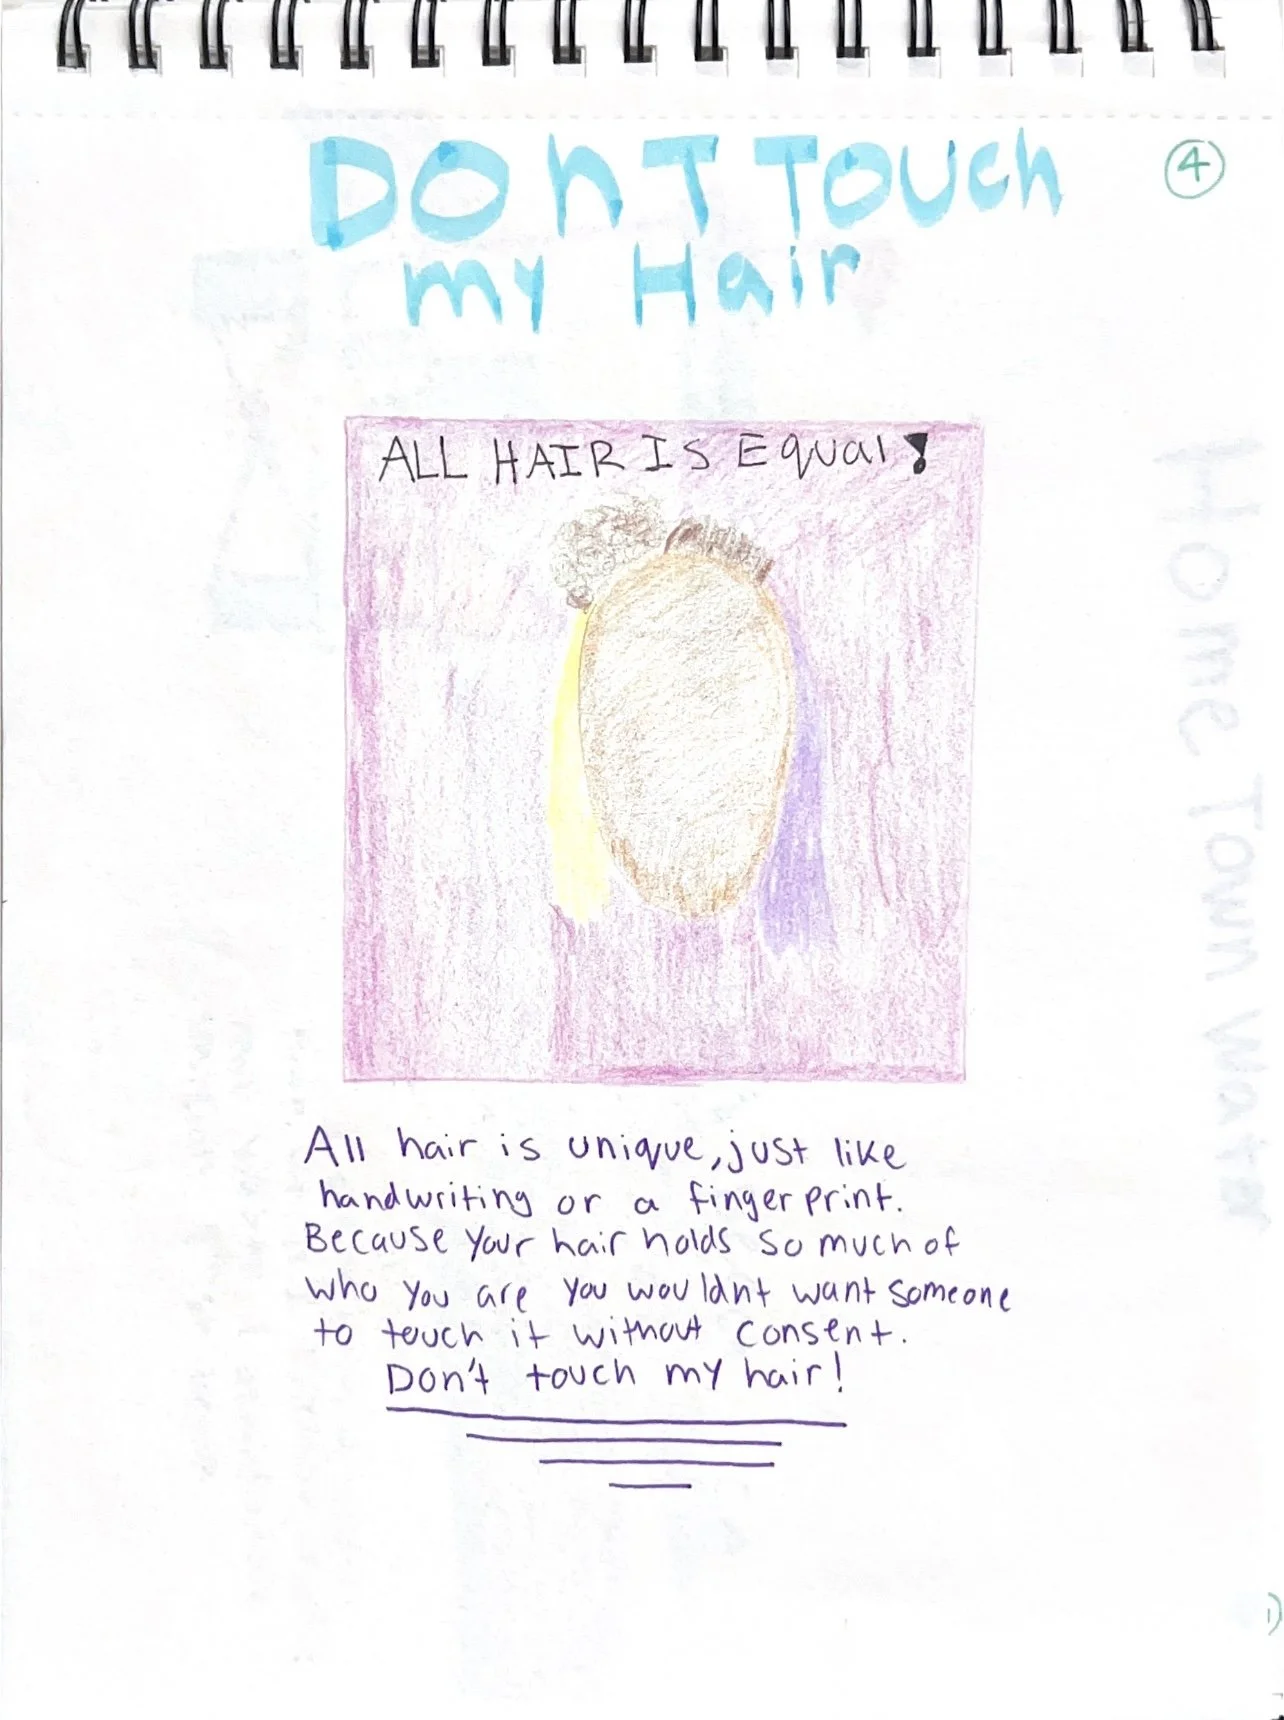 DOnT TOUCh
④
my Hair
ALL HAIR IS EQual!
All hair is unique, just like
handwriting or a fingerprint.
Because your hair holds so much of
who you are you wouldnt want someone
to touch it without consent.
Don't touch my hair!
Home Town